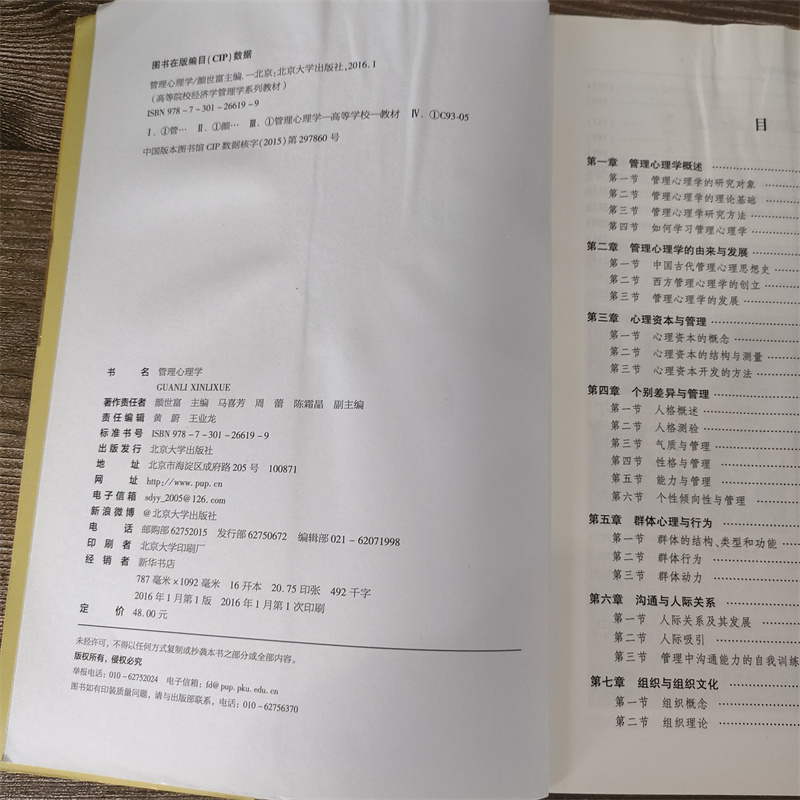 图书在版编目(CIP)数据
管理心理学/颜世富主编.—北京:北京大学出版社,2016.1
(高等院校经济学管理学系列教材)
ISBN 978-7-301-26619-9
Ⅰ.①管… Ⅱ.①颜… Ⅲ.①管理心理学—高等学校—教材 Ⅳ.①C93-05
中国版本图书馆CIP数据核字(2015)第297860号
书 名 管理心理学
GUANLI XINLIXUE
著作责任者 颜世富 主编 马喜芳 周 蕾 陈霜晶 副主编
责任编辑 黄 蔚 王业龙
标准书号 ISBN 978-7-301-26619-9
出版发行 北京大学出版社
地 址 北京市海淀区成府路205号 100871
网 址 http://www.pup.cn
电子信箱 sdyy_2005@126.com
新浪微博 @北京大学出版社
电 话 邮购部62752015 发行部62750672 编辑部021-62071998
印 刷 者 北京大学印刷厂
经 销 者 新华书店
787毫米×1092毫米 16开本 20.75印张 492千字
2016年1月第1版 2016年1月第1次印刷
定 价 48.00元
未经许可,不得以任何方式复制或抄袭本书之部分或全部内容。
版权所有,侵权必究
举报电话:010-62752024 电子信箱:fd@pup.pku.edu.cn
图书如有印装质量问题,请与出版部联系,电话:010-62756370
目
第一章 管理心理学概述
第一节 管理心理学的研究对象
第二节 管理心理学的理论基础
第三节 管理心理学研究方法
第四节 如何学习管理心理学
第二章 管理心理学的由来与发展
第一节 中国古代管理心理思想史
第二节 西方管理心理学的创立
第三节 管理心理学的发展
第三章 心理资本与管理
第一节 心理资本的概念
第二节 心理资本的结构与测量
第三节 心理资本开发的方法
第四章 个别差异与管理
第一节 人格概述
第二节 人格测验
第三节 气质与管理
第四节 性格与管理
第五节 能力与管理
第六节 个性倾向性与管理
第五章 群体心理与行为
第一节 群体的结构、类型和功能
第二节 群体行为
第三节 群体动力
第六章 沟通与人际关系
第一节 人际关系及其发展
第二节 人际吸引
第三节 管理中沟通能力的自我训练
第七章 组织与组织文化
第一节 组织概念
第二节 组织理论